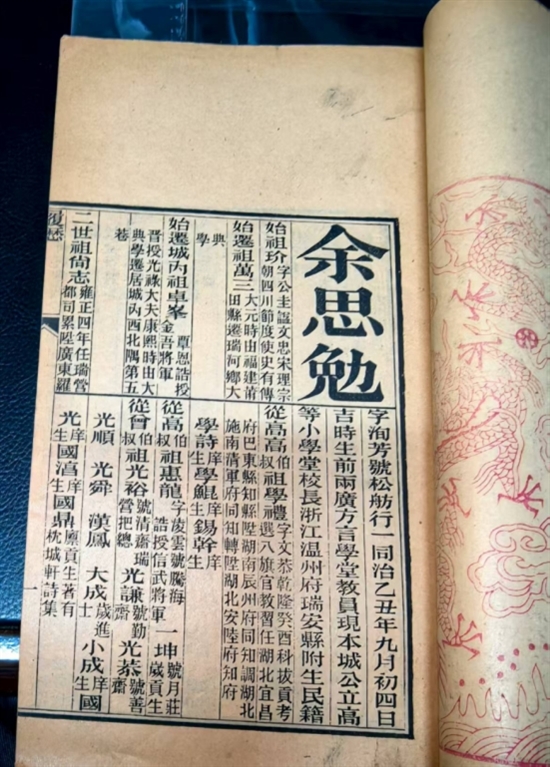 余思勉
字洵芳號松舫行一同治乙丑年九月初四日
吉時生前兩廣方言學堂教員現本城公立高
等小學堂校長浙江温州府瑞安縣附生民籍
始祖玠字公圭諡文忠宋理宗
朝四川節度使史有傳
始遷祖萬三大元時由福建莆
田縣遷瑞河鄉大
典學
始遷城內祖卓峯覃恩誥授
金吾將軍
晋授光祿大夫康熙時由大
典學遷居城內西北隅第五
巷
二世祖尚志雍正四年任瑞營
都司累陞廣東羅
從高高伯叔祖學禮字文恭乾隆癸酉科拔貢考
選八旗官教習任湖北宜昌
府巴東縣知縣陞湖南辰州府同知調湖北
施南清軍府同知轉陞湖北安陸府知府
學詩庠生學鯤庠生錫幹庠生
從高伯叔祖惠龍字凌雲號騰海
誥授信武將軍一坤號月莊
歲貢生
從曾伯叔祖光裕號清齋瑞
營把總光謙號勤齋光恭號善齋
光順 光舜 漢鳳 大成歲進士小成庠生國
光庠生國鼎廩貢生著有
枕城軒詩集
履歷
一